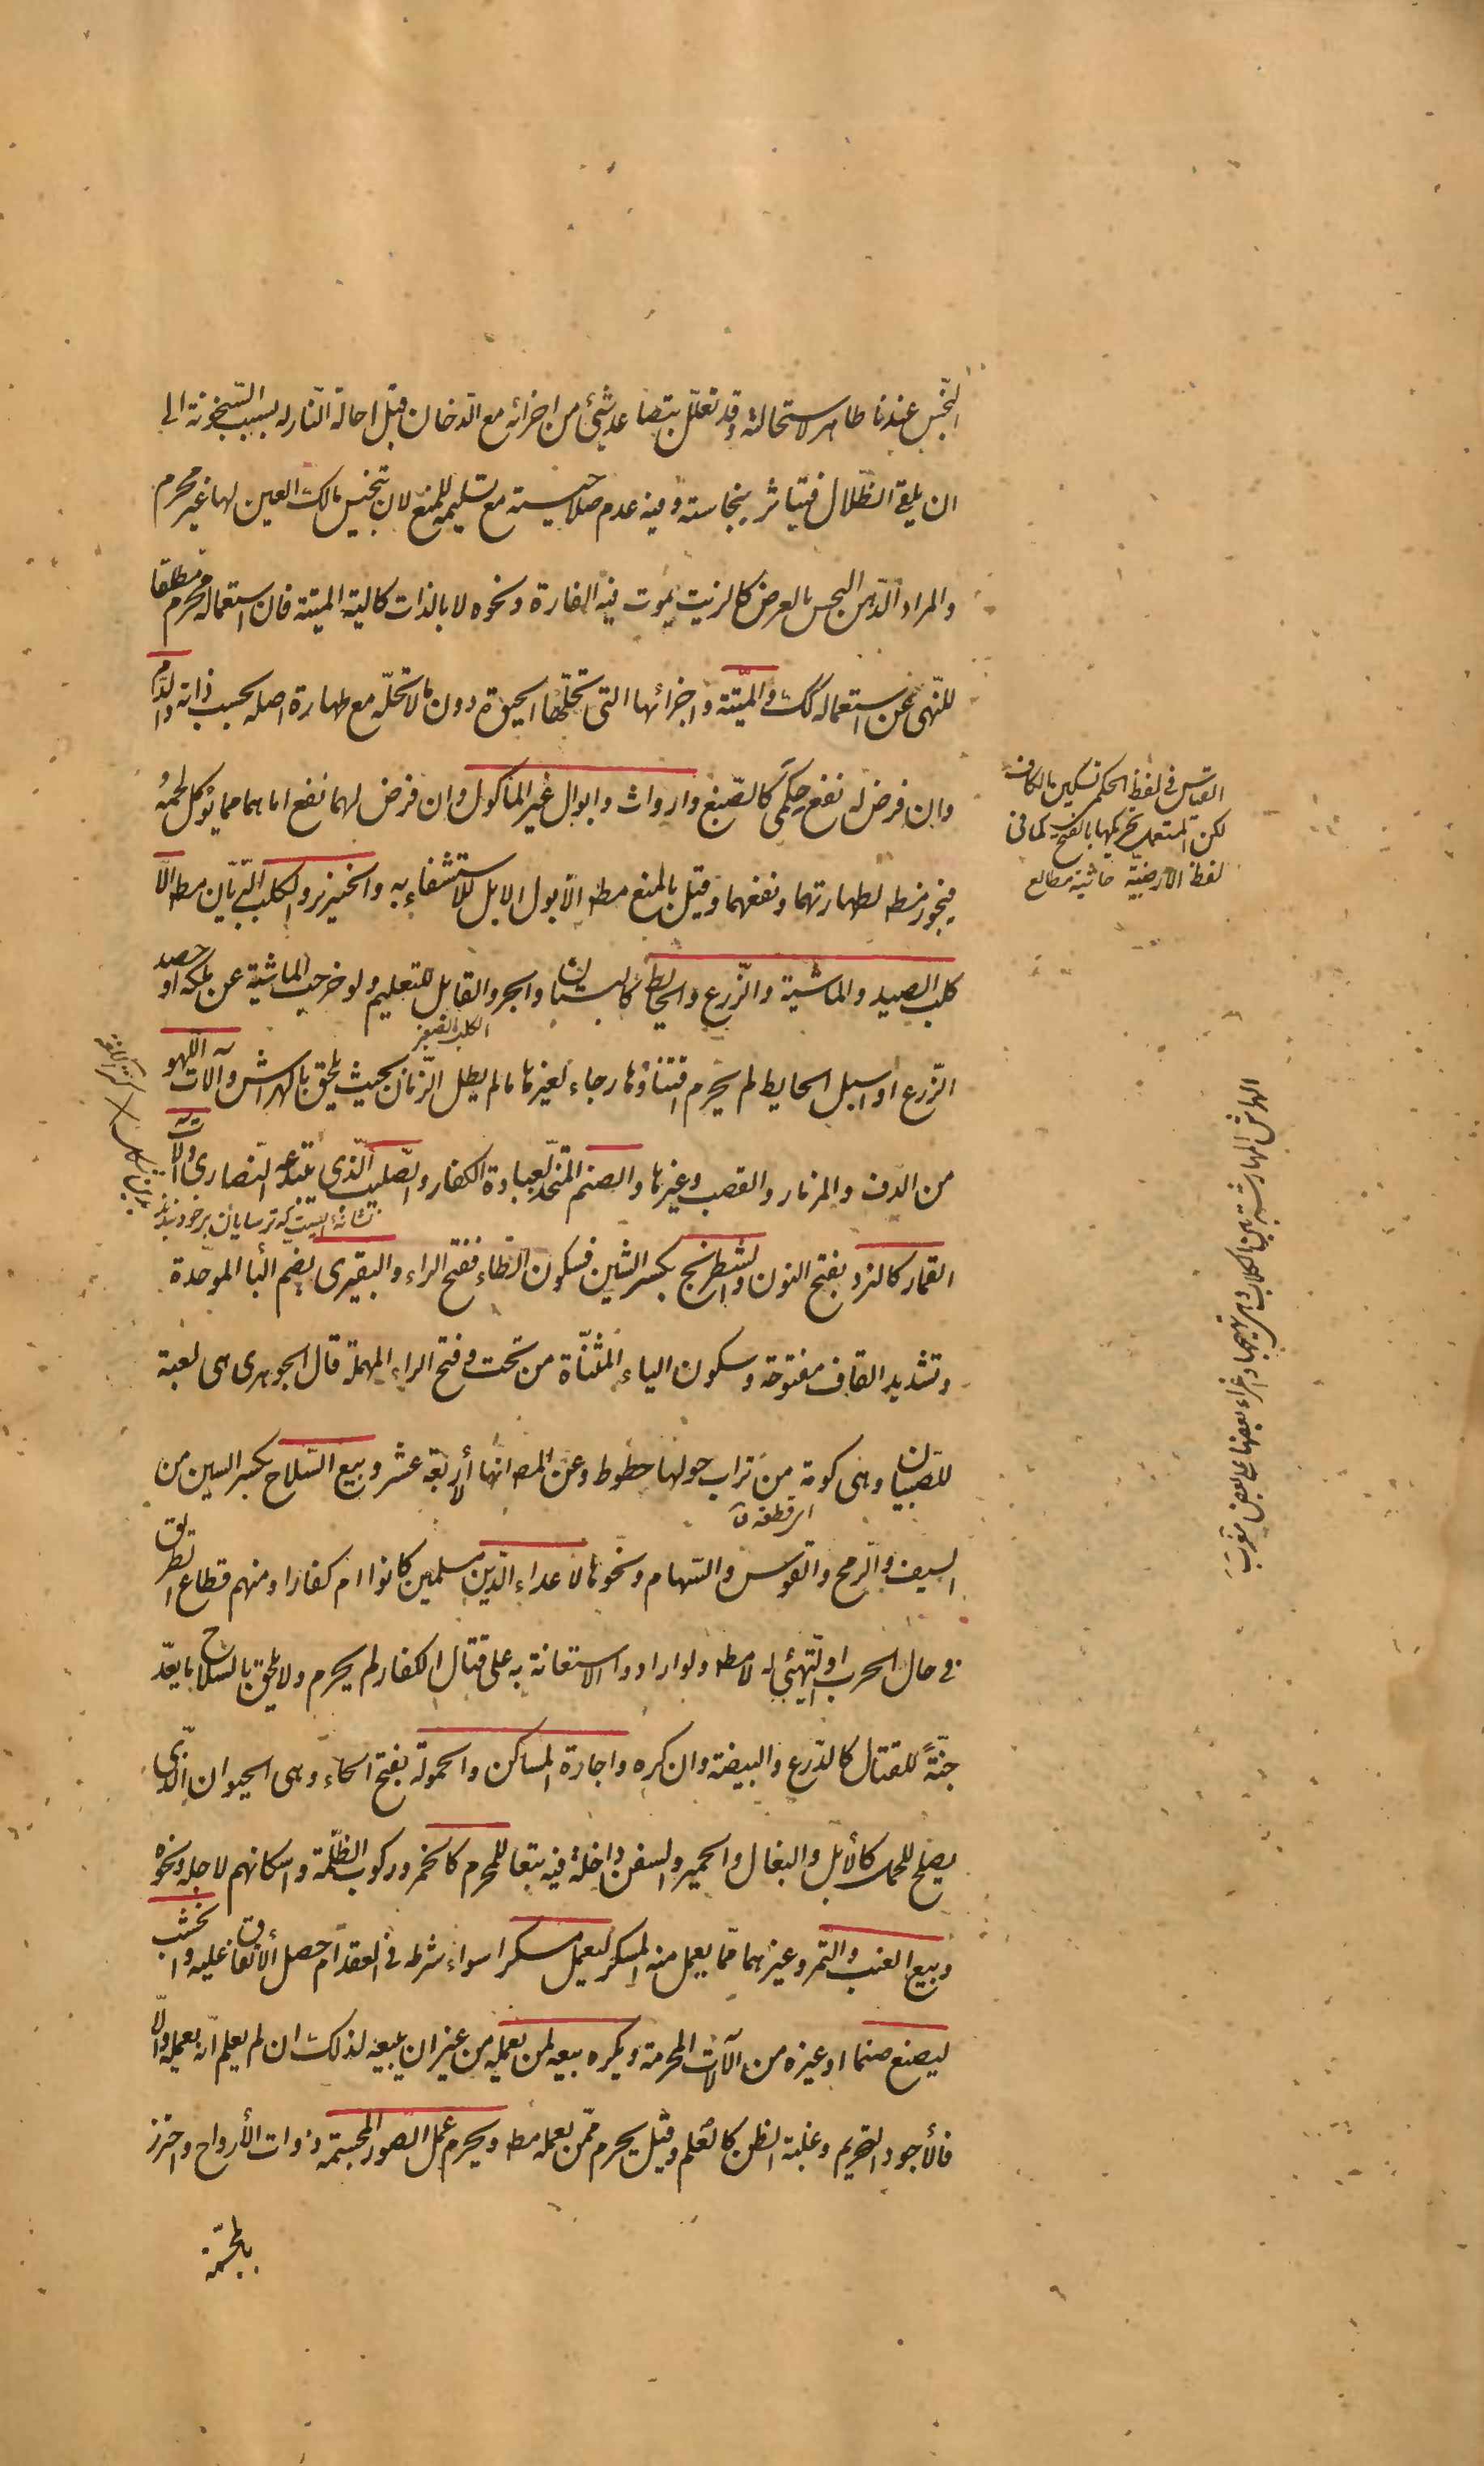 النّجس عندنا طاهر لاستحالته وقد تعلّل بتصاعد شيئ من اجزائه مع الدّخان قبل احالة النّار له بسبب السّخونة الى
ان يلقى الظّلال فيتأثر بنجاسته وفيه عدم صلاحيته مع تسليمه للمنع لان تنجيس مالك العين لها غير محرم
والمراد الدّهن النجس بالعرض كالزيت يموت فيه الفارة ونحوه لا بالذات كالية الميتة فان استعماله محرم مطلقا
للنّهى عن استعماله كك والميّتة واجزائها التى تحلّها الحيوة دون ما لا تحلّه مع طهارة اصله بحسب ذاته والدّم
وان فرض له نفع حكمى كالصّبغ وارواث وابوال غير المأكول وان فرض لهما نفع اما هما مما يؤكل لحمه
فيجوز مط لطهارتهما ونفعهما وقيل بالمنع مط الّا بول الابل للاستشفاء به والخنزير والكلب البرّيان مط الّا
كلب الصيد والماشية والزّرع والحايط كالبستان والجرو القابل للتعليم ولو خرجت الماشية عن ملكه او حصد
الكلب الصغير
الزّرع او استغل الحايط لم يحرم اقتناؤها رجاء لغيرها ما لم يطل الزّمان بحيث يلحق بالهراش وآلات اللهو
من الدّف والمزمار والقصب وغيرها والصنم المتخذ لعبادة الكفار والصّليب الّذى يبتدعه النّصارى وآلات
نشانه ايست كه ترسايان بر خود بندند
القمار كالنرد بفتح النون والشطرنج بكسر الشين فسكون الطاء ففتح الراء والبقيرى بضم البا الموحّدة
وتشديد القاف مفتوحة وسكون الياء المثنّاة من تحت وفتح الراء المهملة قال الجوهرى هى لعبة
للصّبيان وهى كومة من تراب حولها خطوط وعن المصه انها الأربعة عشر وبيع السّلاح بكسر السين من
السيف والرّمح والقوس والسّهام ونحوها لاعداء الدّين مسلمين كانوا ام كفارا ومنهم قطاع الطريق
فى حال الحرب او التّهيّئ له لا مط ولو ارادوا الاستعانة به على قتال الكفار لم يحرم ولا يلحق بالسّلاح ما يعدّ
جنّةً للقتال كالدّرع والبيضة وان كره واجارة المساكن والحمولة بفتح الحاء وهى الحيوان الّذى
يصلح للحمل كالأبل والبغال والحمير والسفن داخلة فيه تبعا للمحرم كالخمر وركوب الظّلمة واسكانهم لاجله ونحوه
وبيع العنب والتّمر وغيرهما ممّا يعمل منه المسكر ليعمل مسكرا سواء شرطه فى العقد ام حصل الأتفاق عليه والخشب
ليصنع صنما او غيره من الآلات المحرمة ويكره بيعه لمن يعمله من غير ان يبيعه لذلك ان لم يعلم انّه يعمله والّا
فالأجود التحريم وغلبة الظن كالعلم وقيل يحرم ممّن يعمله مط ويحرم عمل الصور المجسّمة ذوات الأرواح واحترز
بالمجسّمة
القياس فى لفظ الحكمى تسكين الكاف
لكن المستعمل تحريكها بالفتح كما فى
لفظ الأرضيّة حاشية مطالع
الهراش المهارشة بين الكلاب وهو تهييجها واغراء بعضها على بعض